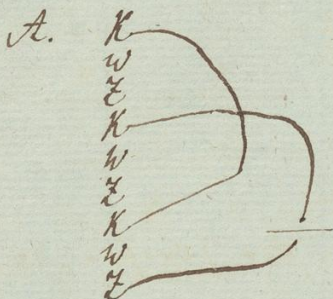 A. K
W
Z
K
W
Z
K
W
Z